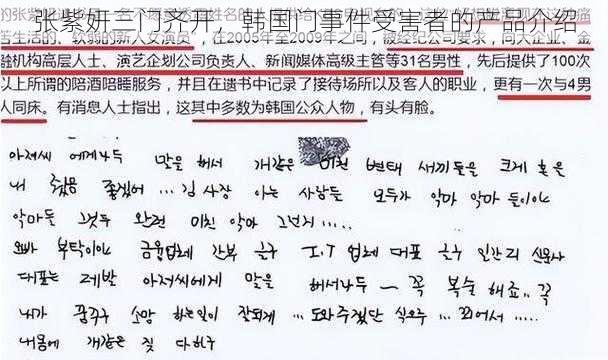 张紫妍三门齐开，韩国门事件受害者的产品介绍
苦生活的、软弱的新人女演员，在2005年至2009年之间，被经纪公司要求，向大企业、金
融机构高层人士、演艺企划公司负责人、新闻媒体高级主管等31名男性，先后提供了100次
以上所谓的陪酒陪睡服务，并且在遗书中记录了接待场所以及客人的职业，更有一次与4男
人同床。有消息人士指出，这其中多数为韩国公众人物，有头有脸。
아저씨 에게나두 말을 해서 개같은 미친 변태 새끼들을 크게 혼
내 줬음 좋겠어... 김사장 아는 사람들 모두가 악마 악마 들이야
악마들 그것두 완전 미친 악마 그런거....
오빠 부탁이야 금융업체 간부 I.T 업체 대표 신문사
대표는 제발 아저씨에게 말을 해서나두 ~ 꼭 복수 해죠.. 꼭
내가 꿈꾸구 소망 하는일이 잘되게 ... 도와주겠단 식으루...
내몸에 개같은 짓 다하구